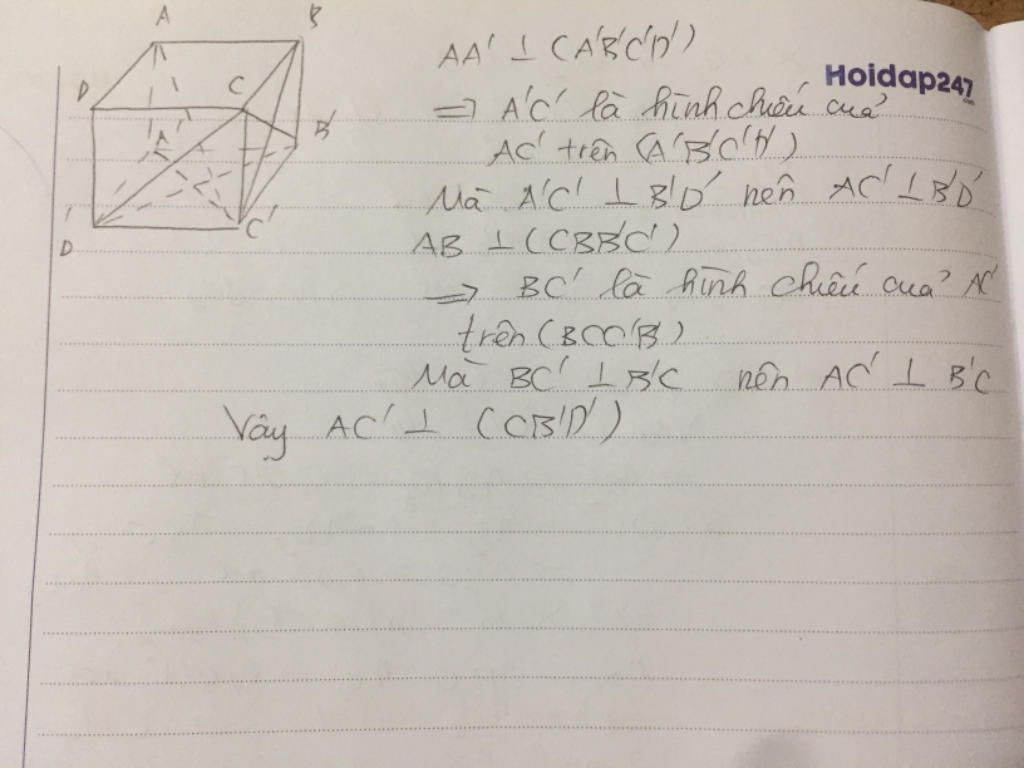 A
B
D
C
A'
B'
D'
C'
AA' ⊥ (A'B'C'D')
Hoidap247
.com
⇒ A'C' là hình chiếu của
AC' trên (A'B'C'D')
Mà A'C' ⊥ B'D' nên AC' ⊥ B'D'
AB ⊥ (CBB'C')
⇒ BC' là hình chiếu của AC'
trên (BCC'B')
Mà BC' ⊥ B'C nên AC' ⊥ B'C
Vậy AC' ⊥ (CB'D')